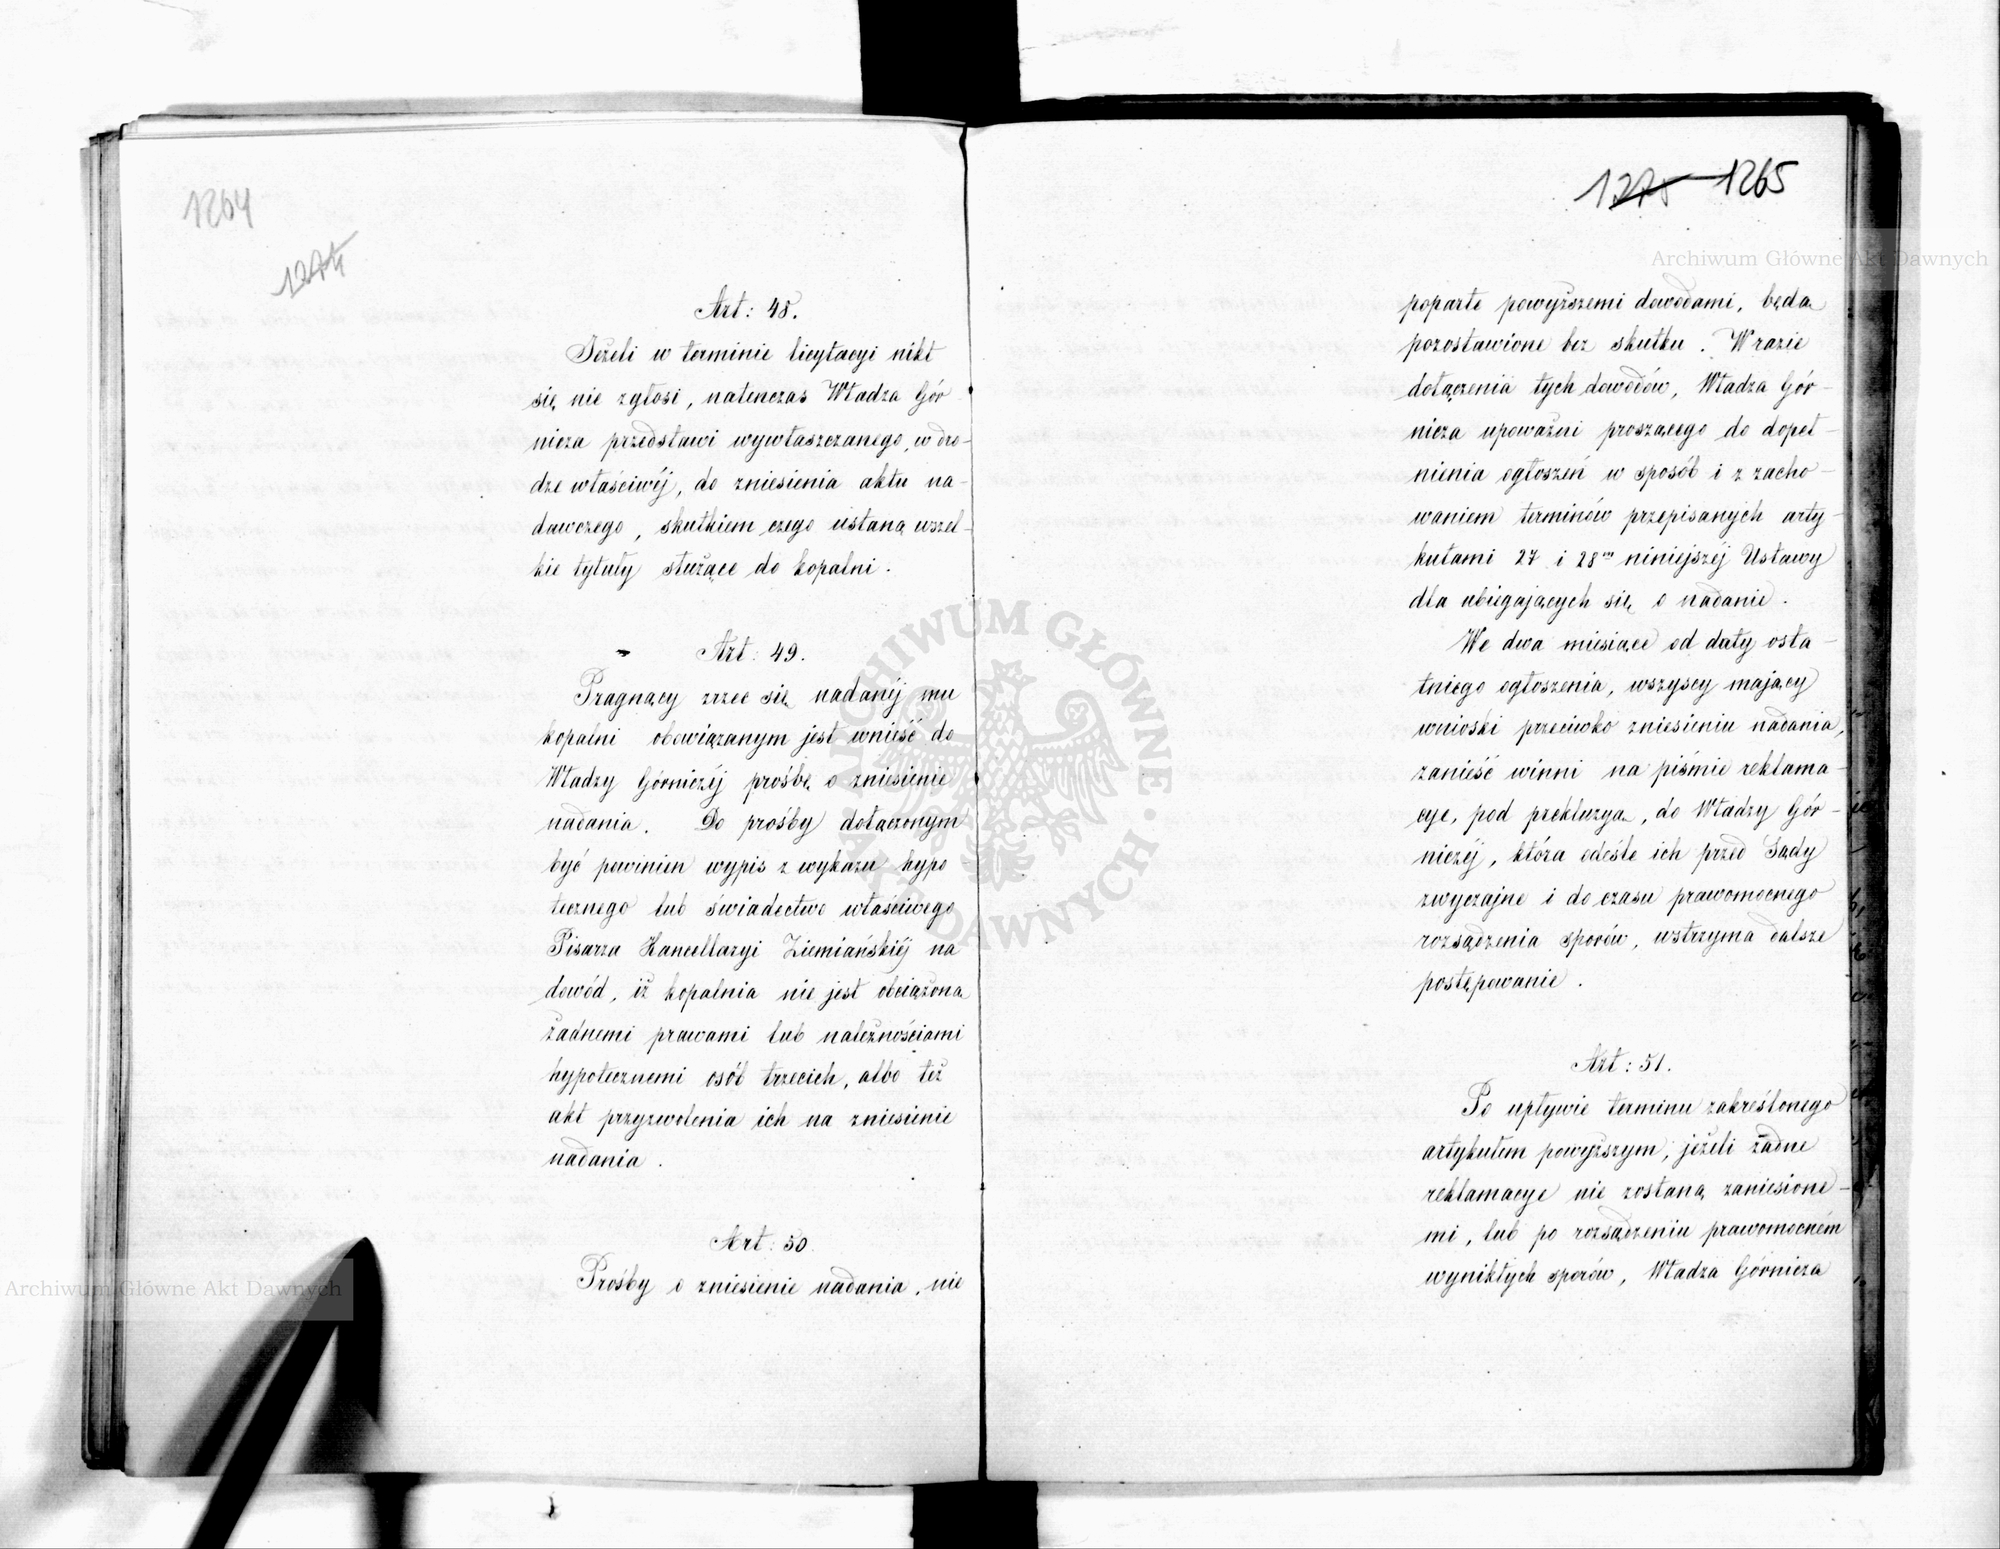 1264
1274
Art: 48.
Jeżeli w terminie licytacyi nikt
się nie zgłosi, natenczas Władza Gór
nicza przedstawi wywłaszczanego, w dro-
dze właściwéj, do zniesienia aktu na-
dawczego, skutkiem czego ustaną wszel-
kie tytuły służące do kopalni.
Art: 49.
Pragnący zrzec się nadanéj mu
kopalni obowiązanym jest wnieść do
Władzy Górniczéj prośbę o zniesienie
nadania. Do prośby dołączonym
być powinien wypis z wykazu hypo
tecznego lub świadectwo właściwego
Pisarza Kancellaryi Ziemiańskiéj na
dowód, iż kopalnia nie jest obciążona
żadnemi prawami lub należnościami
hypotecznemi osób trzecich, albo też
akt przyzwolenia ich na zniesienie
nadania.
Art: 50.
Prośby o zniesienie nadania, nie
1275 1265
poparte powyższemi dowodami, będą
pozostawione bez skutku. W razie
dołączenia tych dowodów, Władza Gór-
nicza upoważni proszącego do dopeł-
nienia ogłoszeń w sposób i z zacho-
waniem terminów przepisanych arty-
kułami 27 i 28ym niniejszéj Ustawy
dla ubiegających się o nadanie.
We dwa miesiące od daty osta-
tniego ogłoszenia, wszyscy mający
wnioski przeciwko zniesieniu nadania,
zanieść winni na piśmie reklama-
cye, pod prekluzyą, do Władzy Gór-
niczéj, która odeśle ich przed Sądy
zwyczajne i do czasu prawomocnego
rozsądzenia sporów, wstrzyma dalsze
postępowanie.
Art: 51.
Po upływie terminu zakreślonego
artykułem powyższym, jeżeli żadne
reklamacye nie zostaną zaniesione-
mi, lub po rozsądzeniu prawomocném
wynikłych sporów, Władza Górnicza
Archiwum Główne Akt Dawnych
Archiwum Główne Akt Dawnych
ARCHIWUM GŁÓWNE AKT DAWNYCH